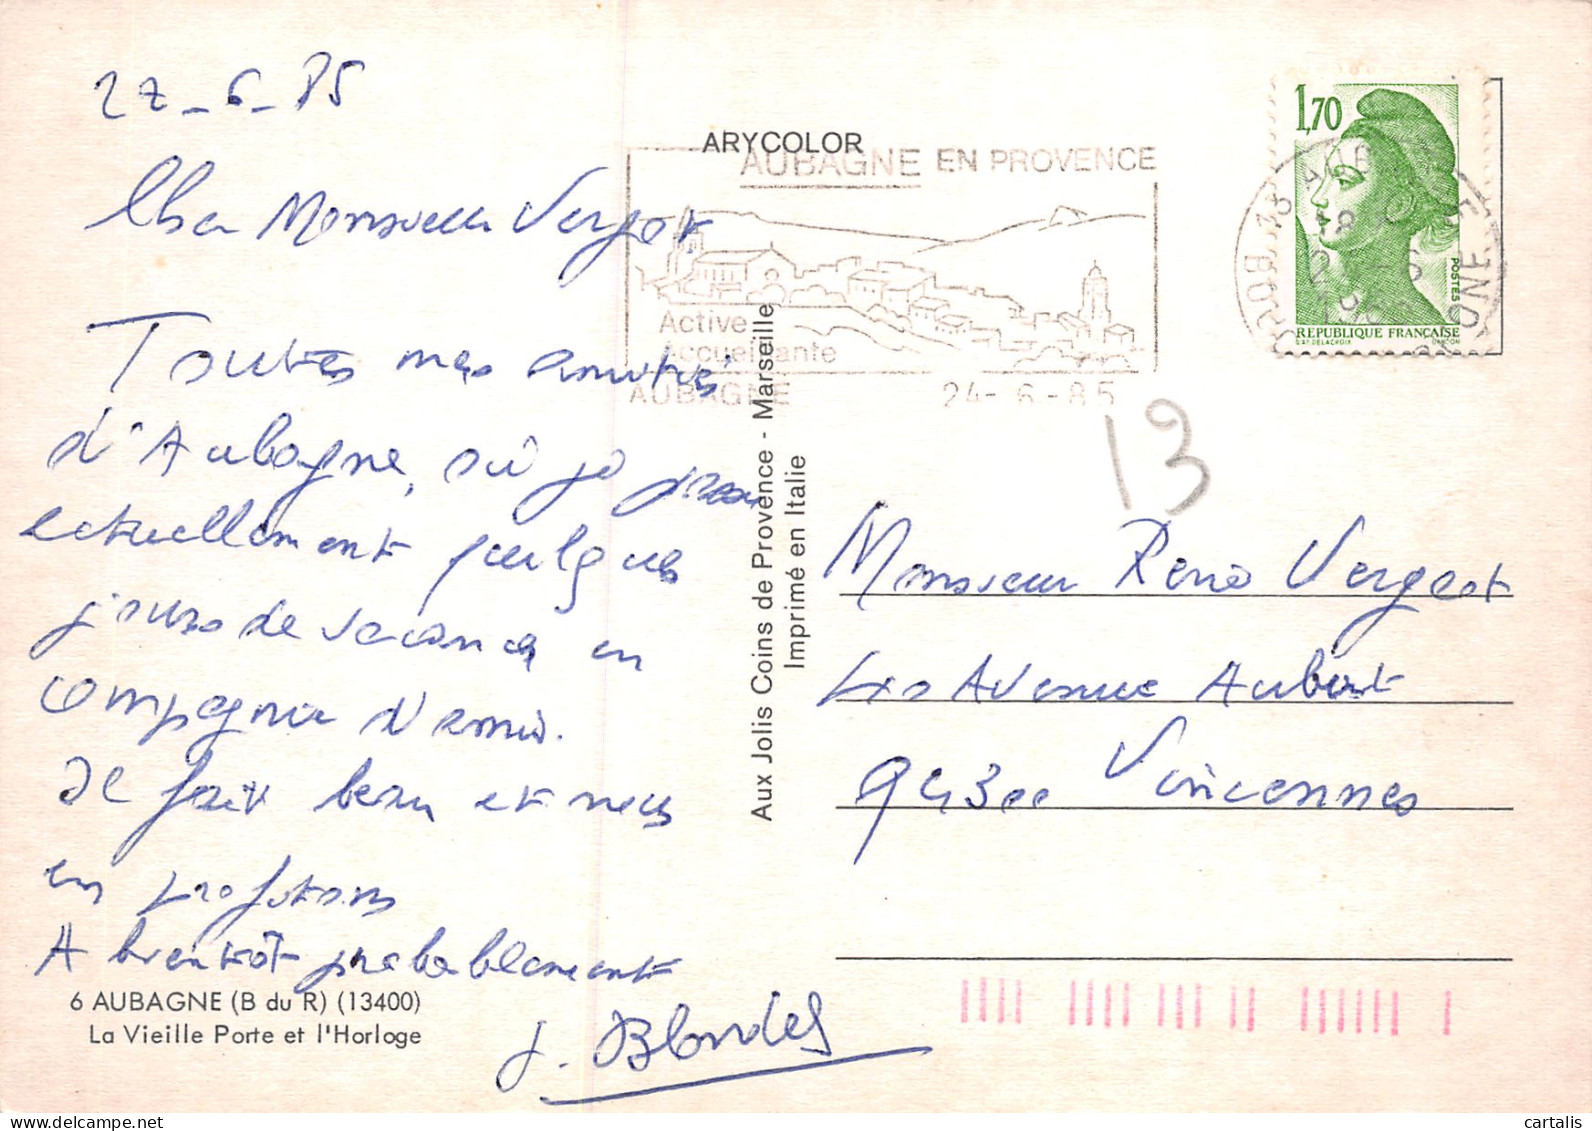 22-6-85
Cher Monsieur Vergot
Toutes mes amitiés
d'Aubagne, où je passe
actuellement quelques
jours de vacances en
compagnie d'amis.
Il fait beau et nous
en profitons
A bientôt probablement
J. Blondel
6 AUBAGNE (B du R) (13400)
La Vieille Porte et l'Horloge
ARYCOLOR
Aux Jolis Coins de Provence - Marseille
Imprimé en Italie
AUBAGNE EN PROVENCE
Active
Accueillante
AUBAGNE
24-6-85
1,70
POSTES
REPUBLIQUE FRANÇAISE
D'AP. DELACROIX
GANDON
13
Monsieur René Vergeot
Avenue Aubert
94300 Vincennes
cartalis